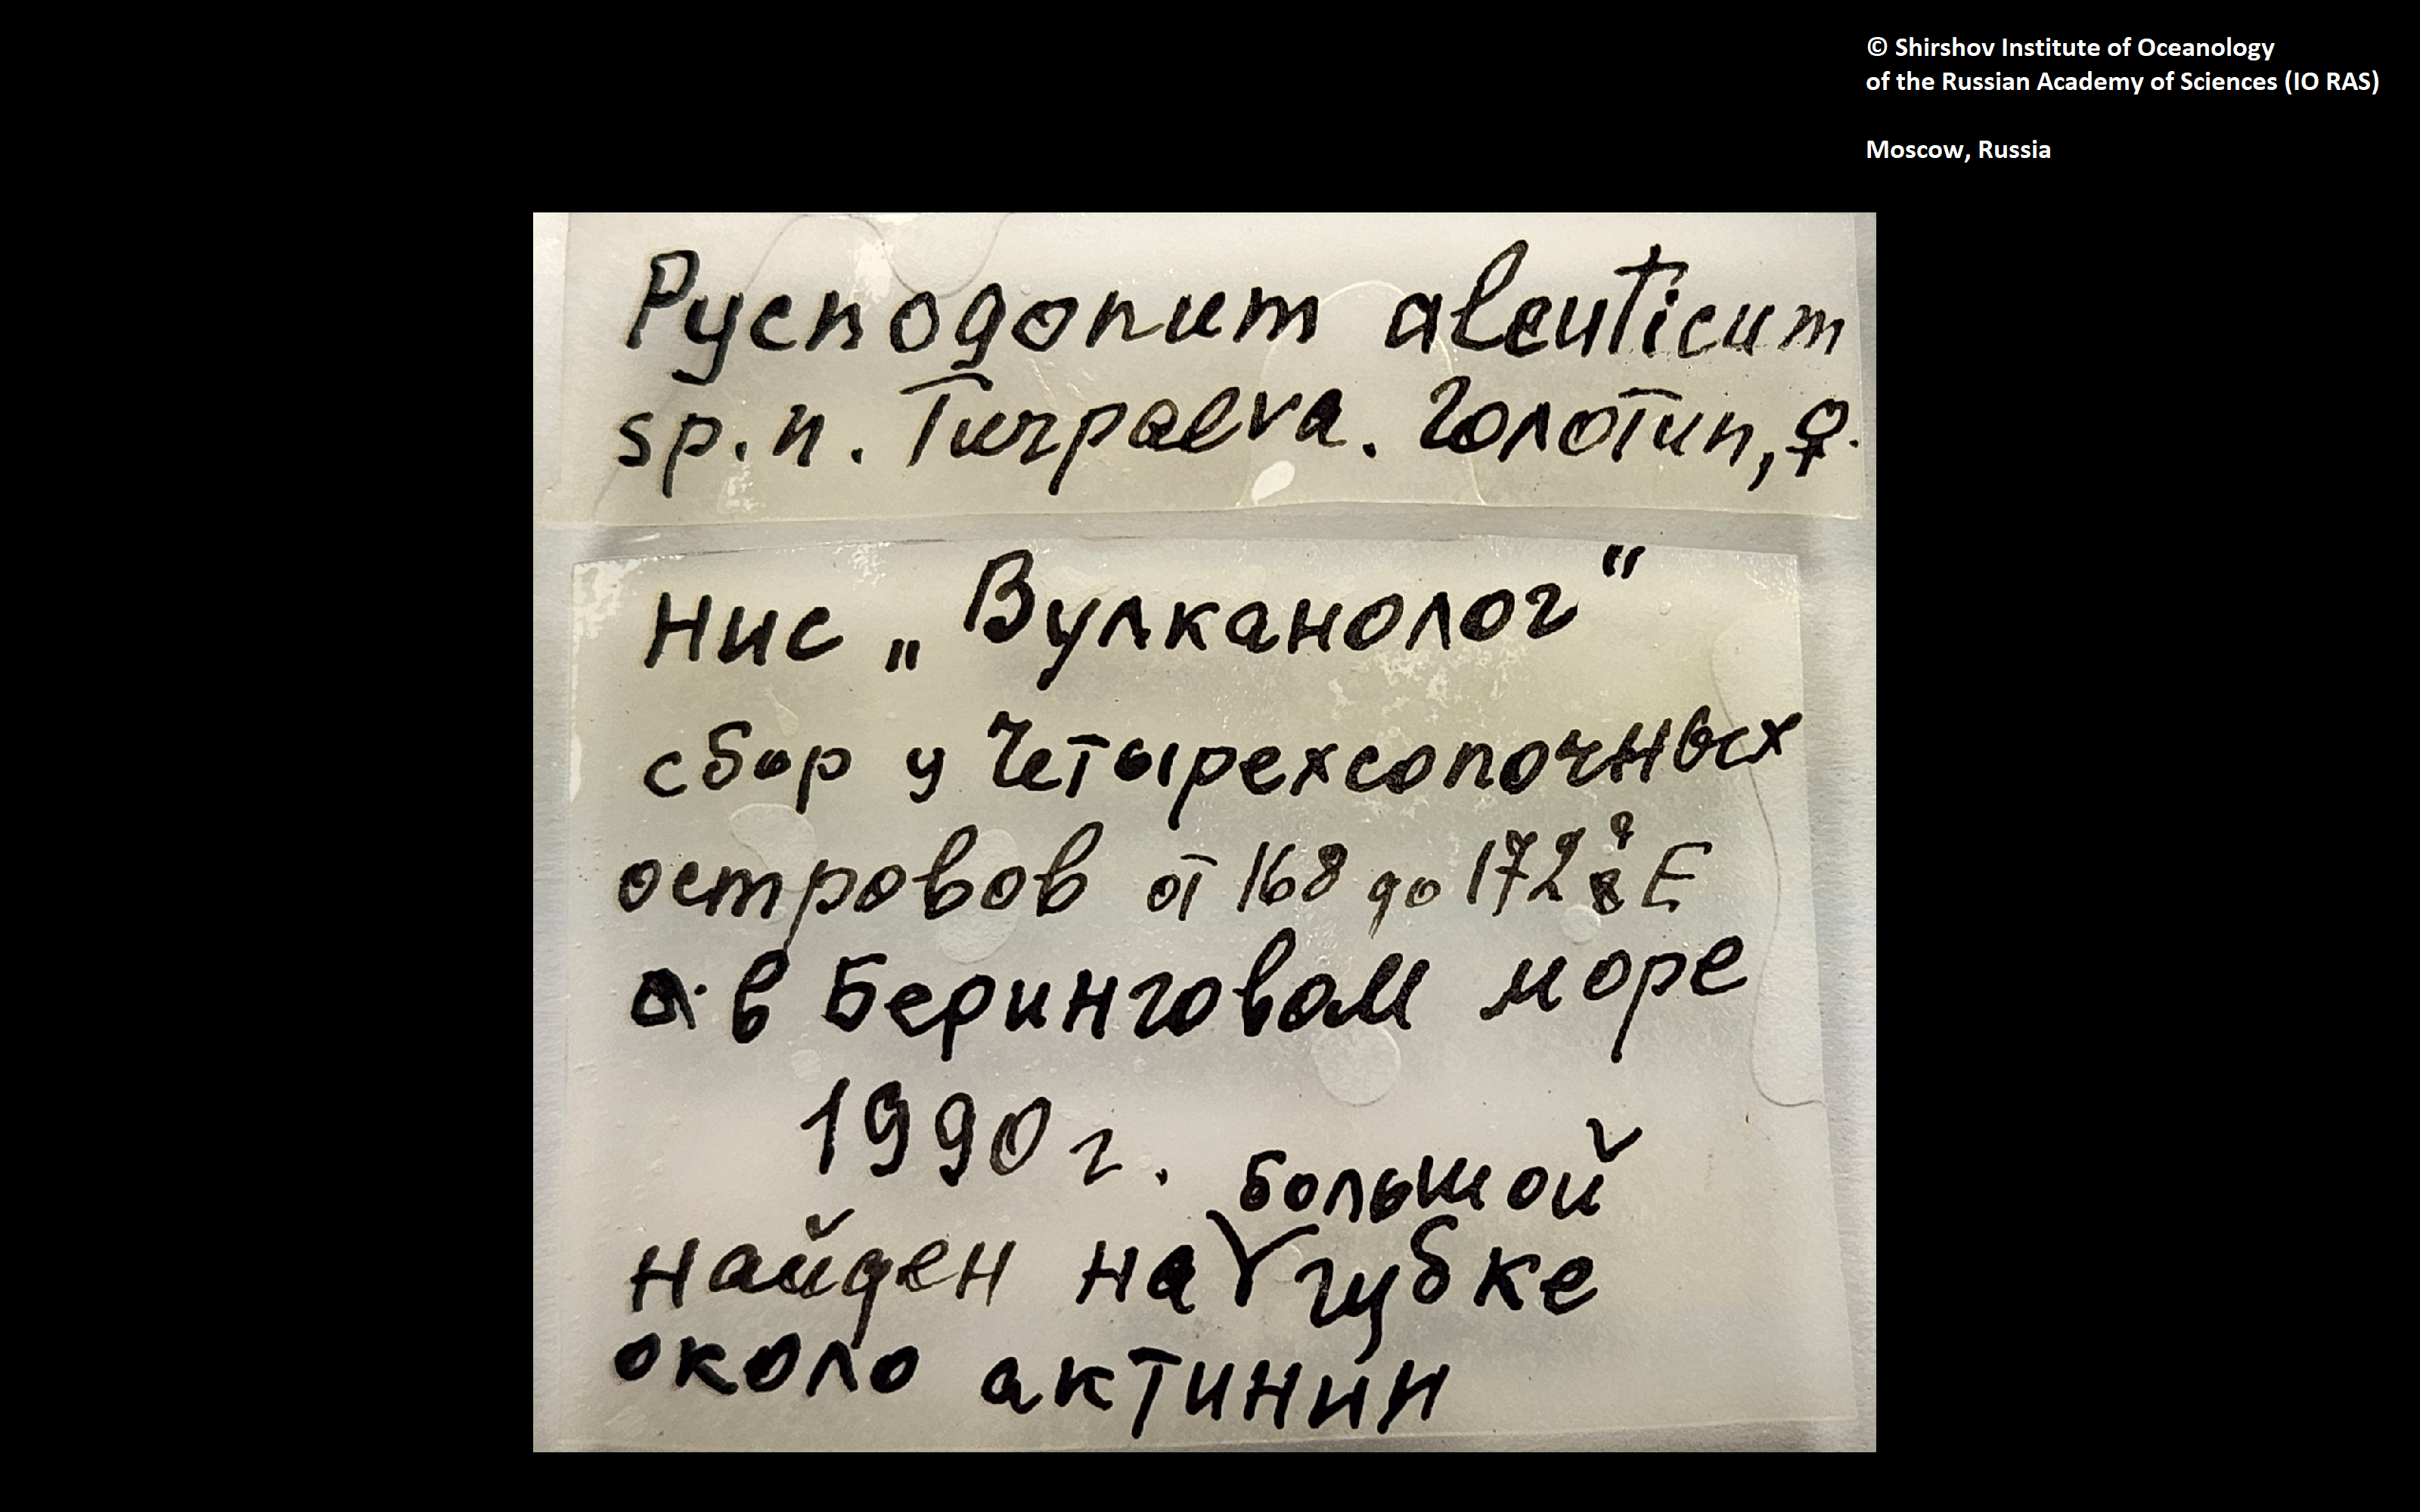 © Shirshov Institute of Oceanology
of the Russian Academy of Sciences (IO RAS)
Moscow, Russia
Pycnogonum aleuticum
sp. n. Turpaeva. Голотип, ♀.
НИС „Вулканолог“
сбор у Четырехсопочных
островов от 168 до 172° E
в Беринговом море
1990 г.
большой
найден на губке
около актинии